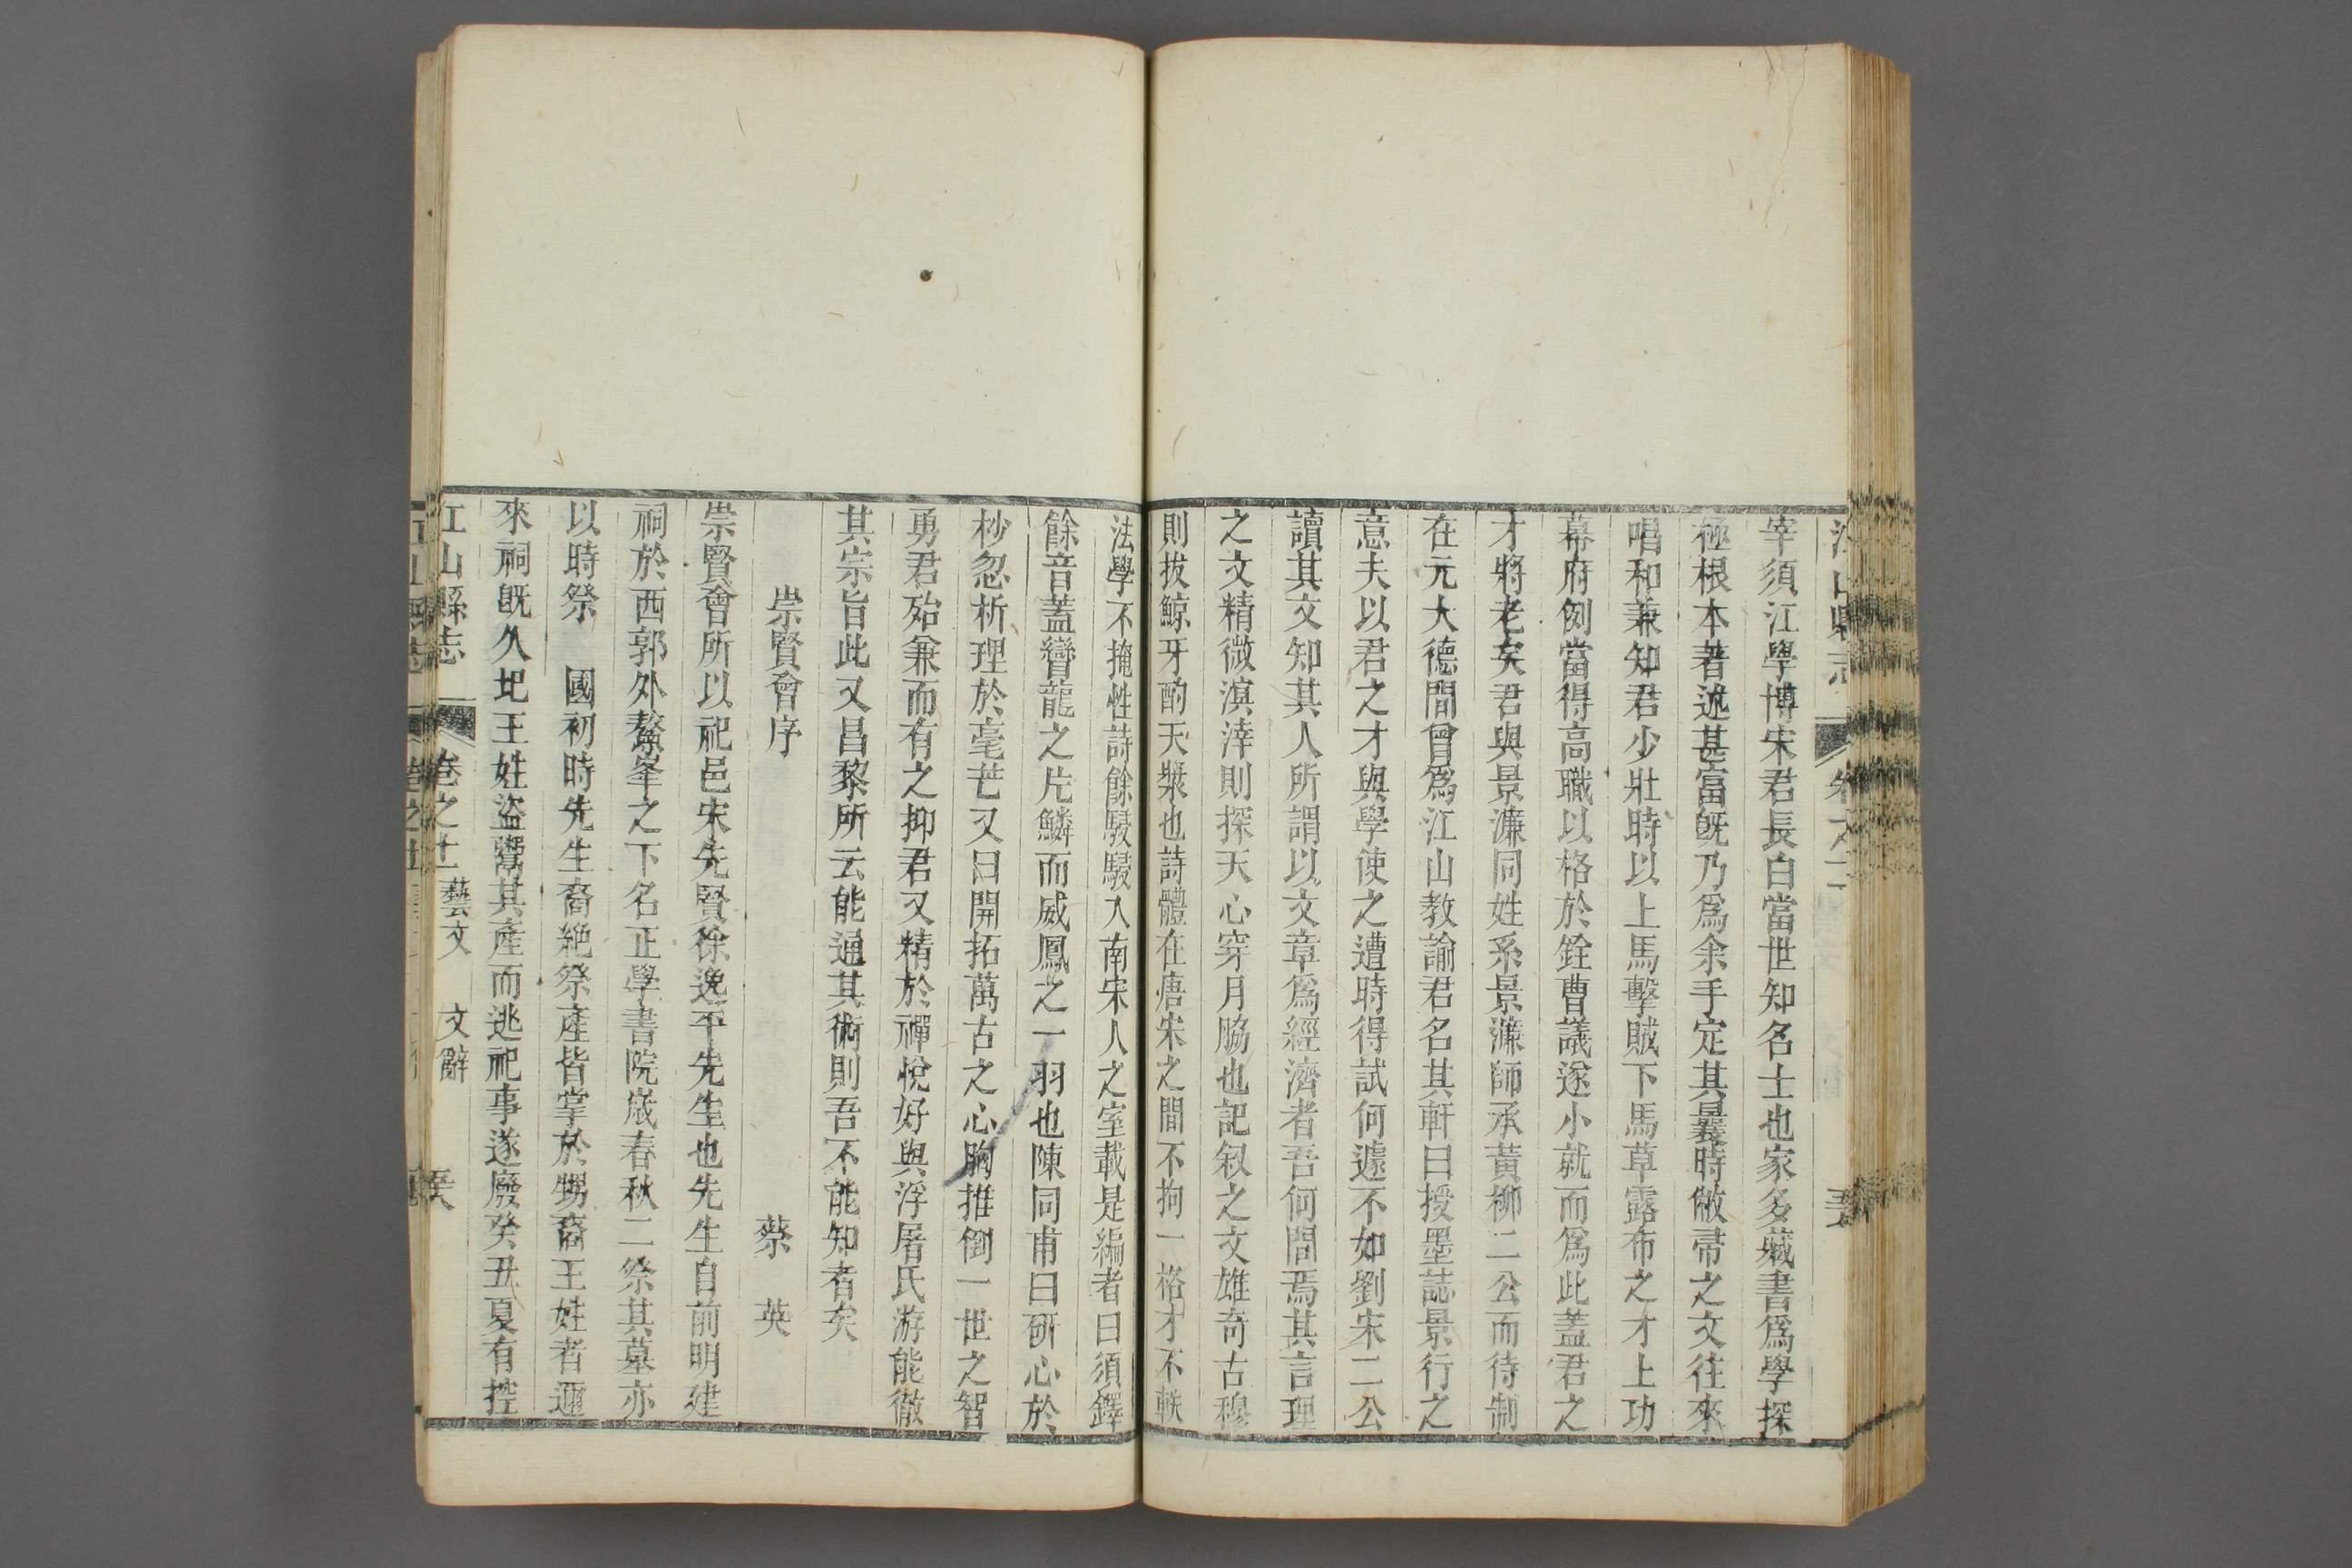 宰須江學博宋君長白當世知名士也家多藏書爲學探
極根本著述甚富既乃爲余手定其曩時敝帚之文往來
唱和兼知君少壯時以上馬擊賊下馬草露布之才上功
幕府例當得高職以格於銓曹議遂小就而爲此蓋君之
才將老矣君與景濂同姓系景濂師承黃柳二公而待制
在元大德間曾爲江山教諭君名其軒曰授墨誌景行之
意夫以君之才與學使之遭時得試何遽不如劉宋二公
讀其文知其人所謂以文章爲經濟者吾何間焉其言理
之文精微溟涬則探天心穿月脇也記叙之文雄奇古穆
則拔鯨牙酌天漿也詩體在唐宋之間不拘一格才不軼
法學不掩性詩餘駸駸入南宋人之室載是編者曰須鐸
餘音蓋㘘龍之片鱗而威鳳之一羽也陳同甫曰研心於
杪忽析理於毫芒又曰開拓萬古之心胸推倒一世之智
勇君殆兼而有之抑君又精於禪悅好與浮屠氏游能徹
其宗旨此又昌黎所云能通其術則吾不能知者矣
崇賢會序
蔡 英
崇賢會所以祀邑宋先賢徐逸平先生也先生自前明建
祠於西郭外鰲峯之下名正學書院歲春秋二祭其墓亦
以時祭 國初時先生裔絶祭產皆掌於甥裔王姓者邇
來祠旣久圮王姓盜鬻其產而逃祀事遂廢癸丑夏有控
江山縣志 卷之十一 藝文 文辭